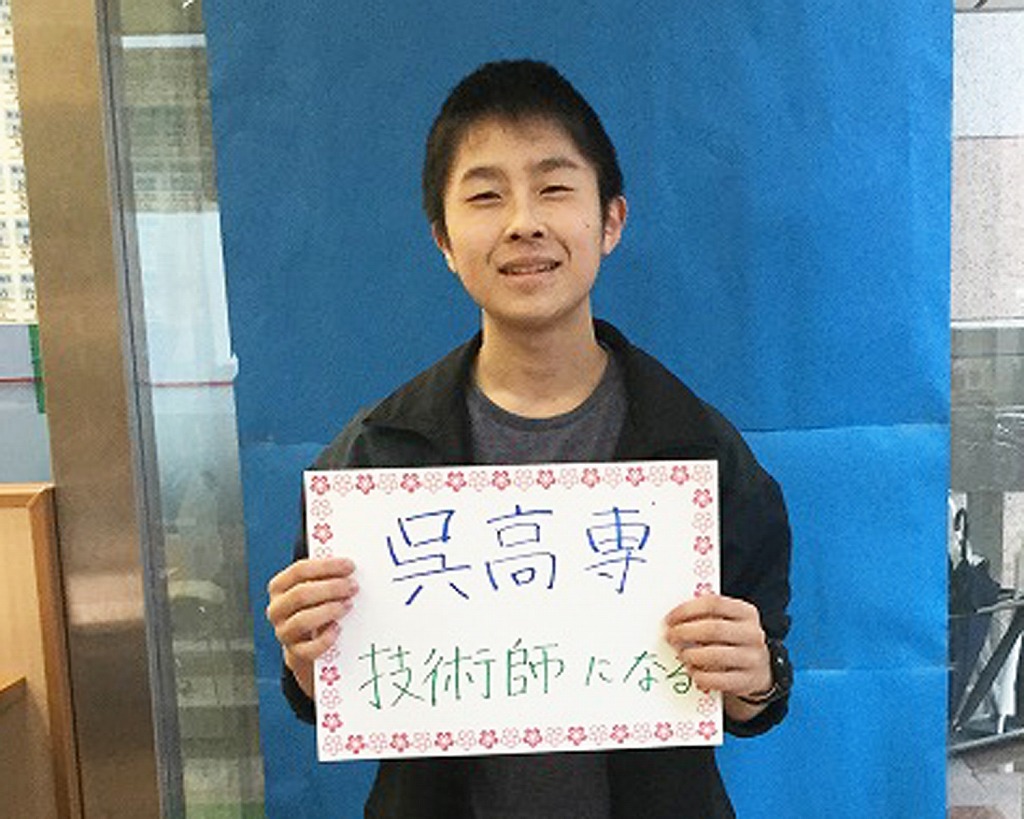 呉高専
技術師になる